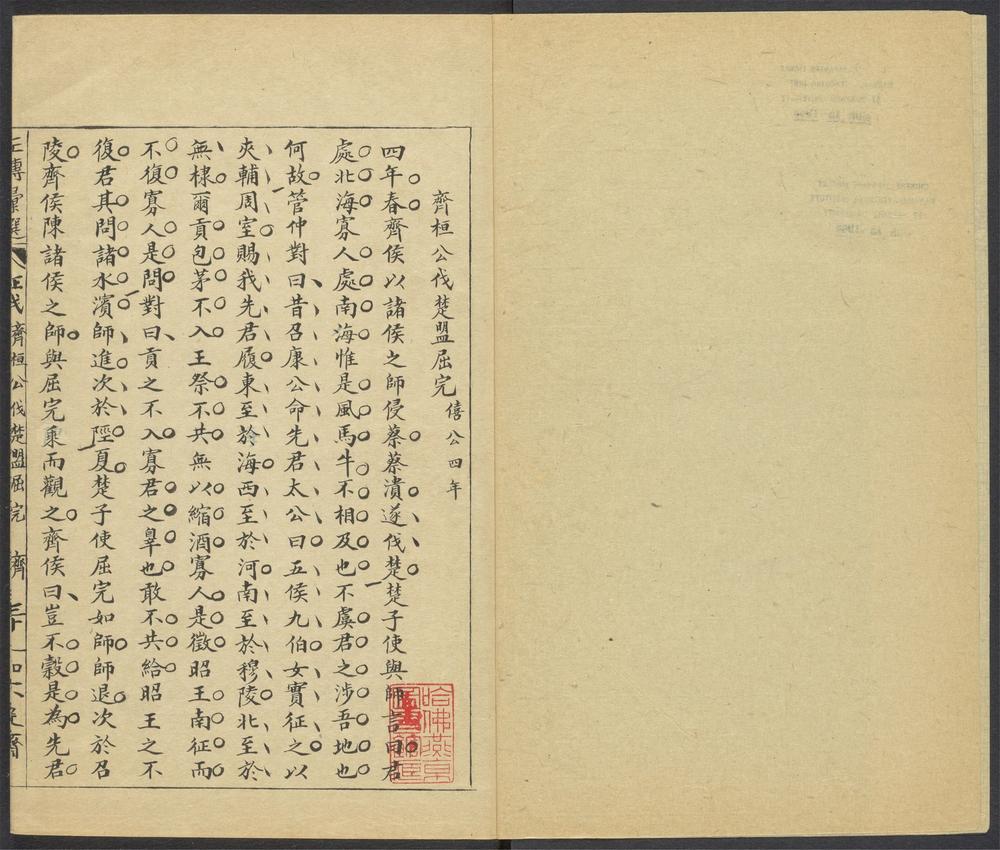 齊桓公伐楚盟屈完 僖公四年
四年春齊侯以諸侯之師侵蔡蔡潰遂伐楚楚子使與師言曰君
處北海寡人處南海惟是風馬牛不相及也不虞君之涉吾地也
何故管仲對曰昔召康公命先君太公曰五侯九伯女實征之以
夾輔周室賜我先君履東至於海西至於河南至於穆陵北至於
無棣爾貢包茅不入王祭不共無以縮酒寡人是徵昭王南征而
不復寡人是問對曰貢之不入寡君之辠也敢不共給昭王之不
復君其問諸水濱師進次於陘夏楚子使屈完如師師退次於召
陵齊侯陳諸侯之師與屈完乘而觀之齊侯曰豈不穀是為先君
左傳彙選 齊桓公伐楚盟屈完 濟
哈佛燕京